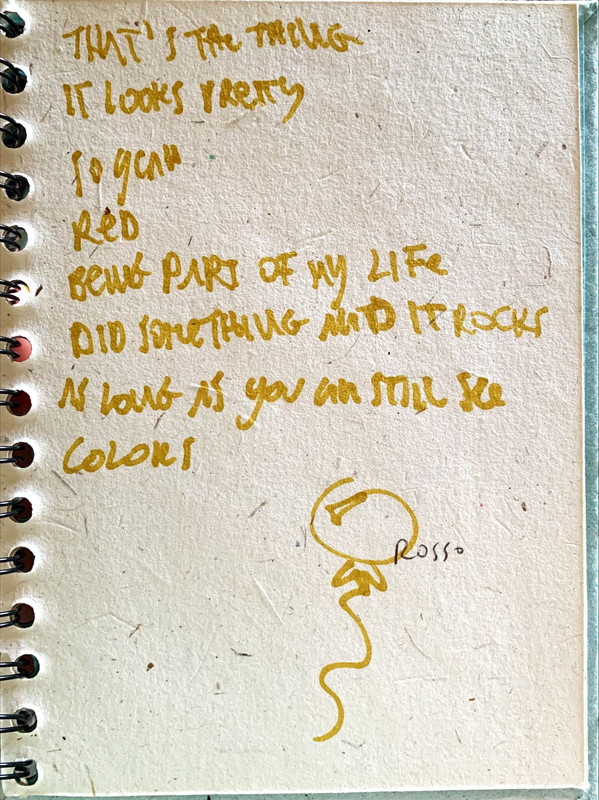 THAT'S THE THING
IT LOOKS PRETTY
SO YEAH
RED
BEING PART OF MY LIFE
DID SOMETHING AND IT ROCKS
AS LONG AS YOU CAN STILL SEE
COLORS
ROSSO